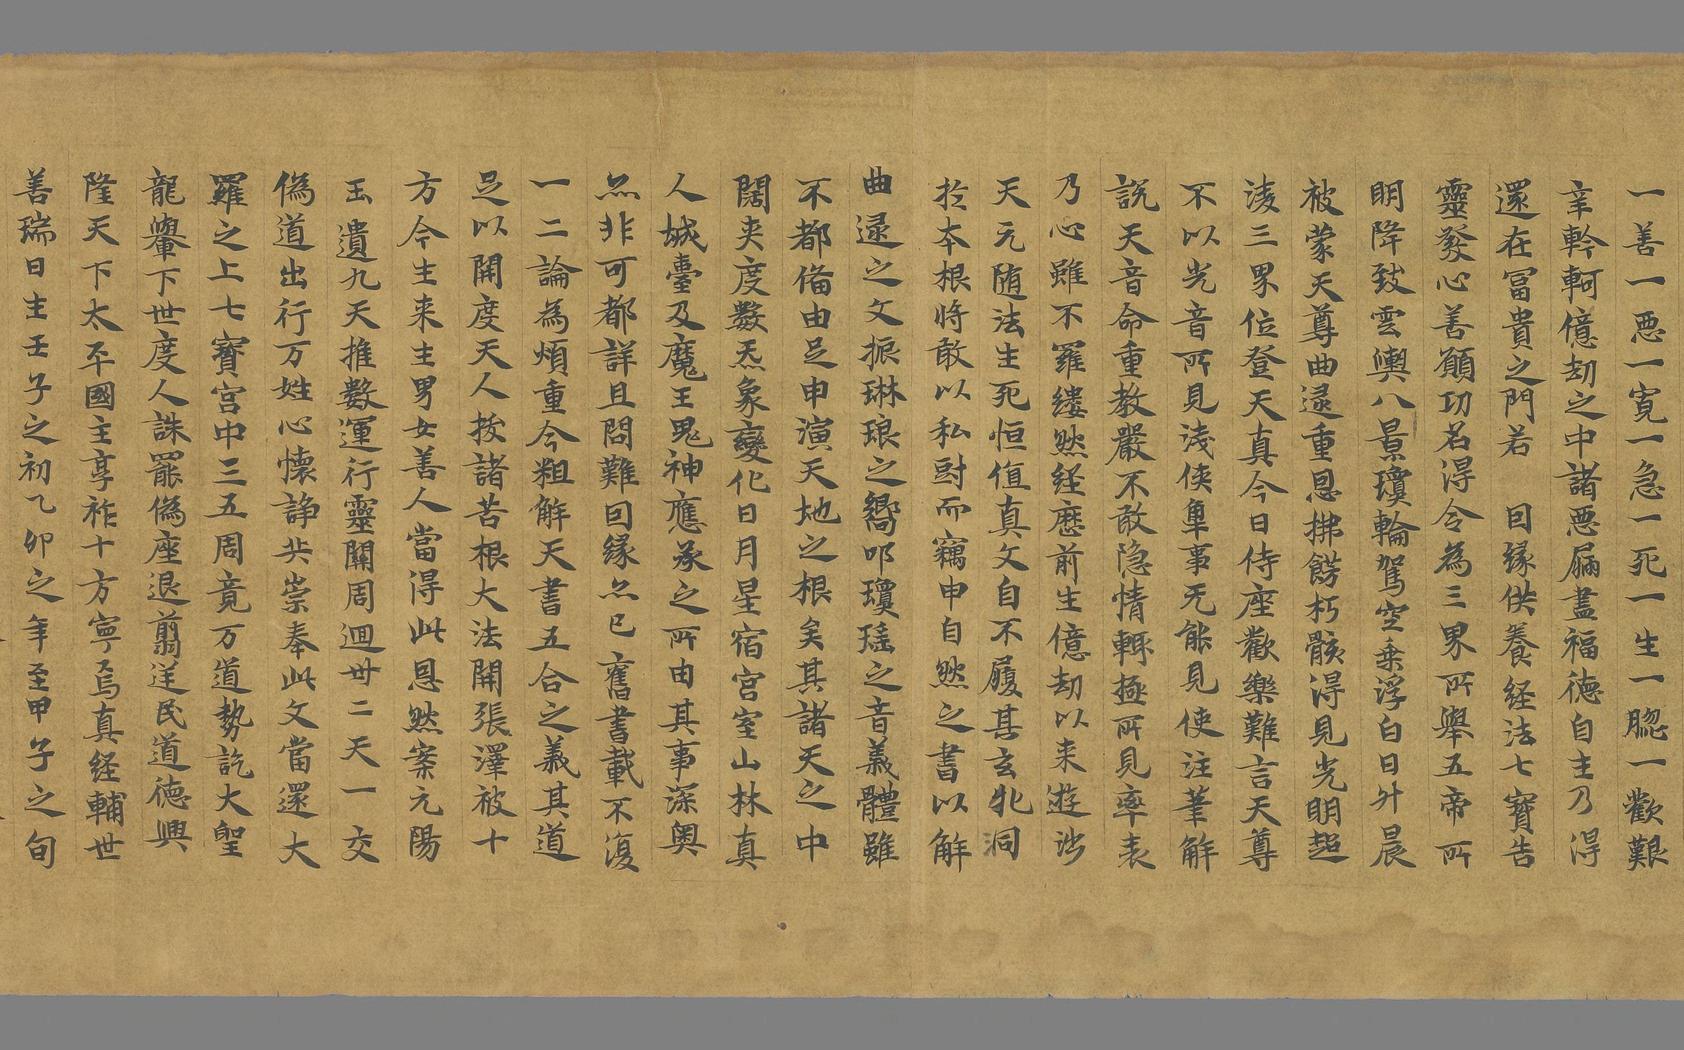 一善一悪一寛一急一死一生一聡一歡艱
辛軫軻億劫之中諸悪扁盡福徳自主乃得
還在冨貴之門若 囙縁供養経法七寳告
靈發心善願功名得令為三界所舉五帝所
明降致雲輿八景瓊輪駕空乗浮白日升晨
被蒙天尊曲逯重恩拂餝朽骸淂見光明超
淩三界位登天真今日侍座歡樂難言天尊
不以光音所見淺侠卑事无能見使注筆解
説天音命重教嚴不敢隐情輙極所見率表
乃心雖不羅縷然経歴前生億劫以来遊涉
天元随法生死恒值真文自不履其玄牝洞
扵夲根将敢以私尌而竊申自然之書以解
曲逯之文振琳琅之嚮叩瓊瑶之音義體雖
不都俻由足申演天地之根矣其諸天之中
闊夾度數炁象變化日月星宿宮室山林真
人城臺及魔王鬼神應承之所由其事深奥
𠅘非可都詳且問難囙縁𠅘已舊書載不復
一二論為煩重今粗解天書五合之義其道
足以開度天人拔諸苦根大法開張澤被十
方今生来主男女善人當得此恩然案元陽
玉遺九天推數運行靈關周迴卅二天一交
偽道出行万姓心懷諍共崇奉此文當還大
羅之上七寳宮中三五周竟万道勢訖大聖
龍轝下世度人誅罷偽座退翦迬民道德興
隆天下太平國主享祚十方寧焉真経輔世
善瑞日主壬子之初乙卯之年至甲子之旬